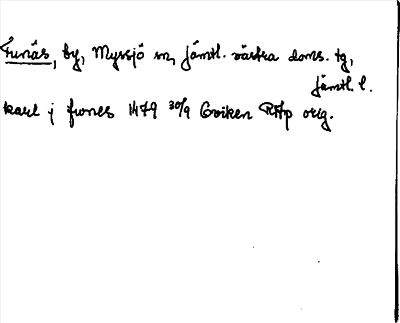 Funäs, by, Myssjö sn, Jämtl. västra doms. tg,
Jämtl. l.
karl j funes 1479 30/9 Oviken RAp orig.